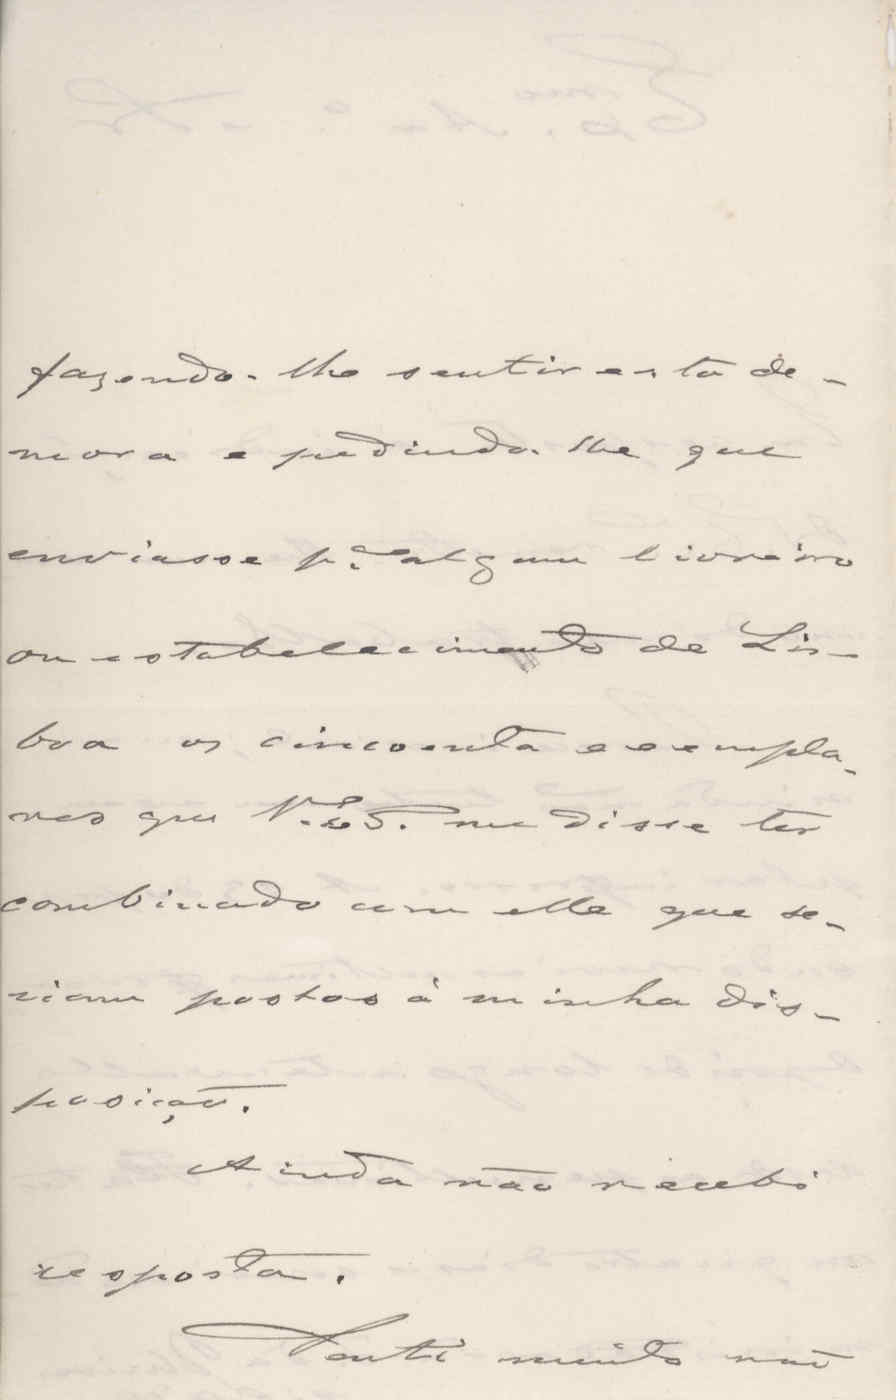 fazendo-lhe sentir esta de-
mora e pedindo-lhe que
enviasse p.ª algum livreiro
ou estabelecimento de Lis-
boa os cincoenta exempla-
res que V. Ex.ª me disse ter
combinado com elle que se-
riam postos á minha dis-
posição.
Ainda não recebi
resposta.
Senti muito não